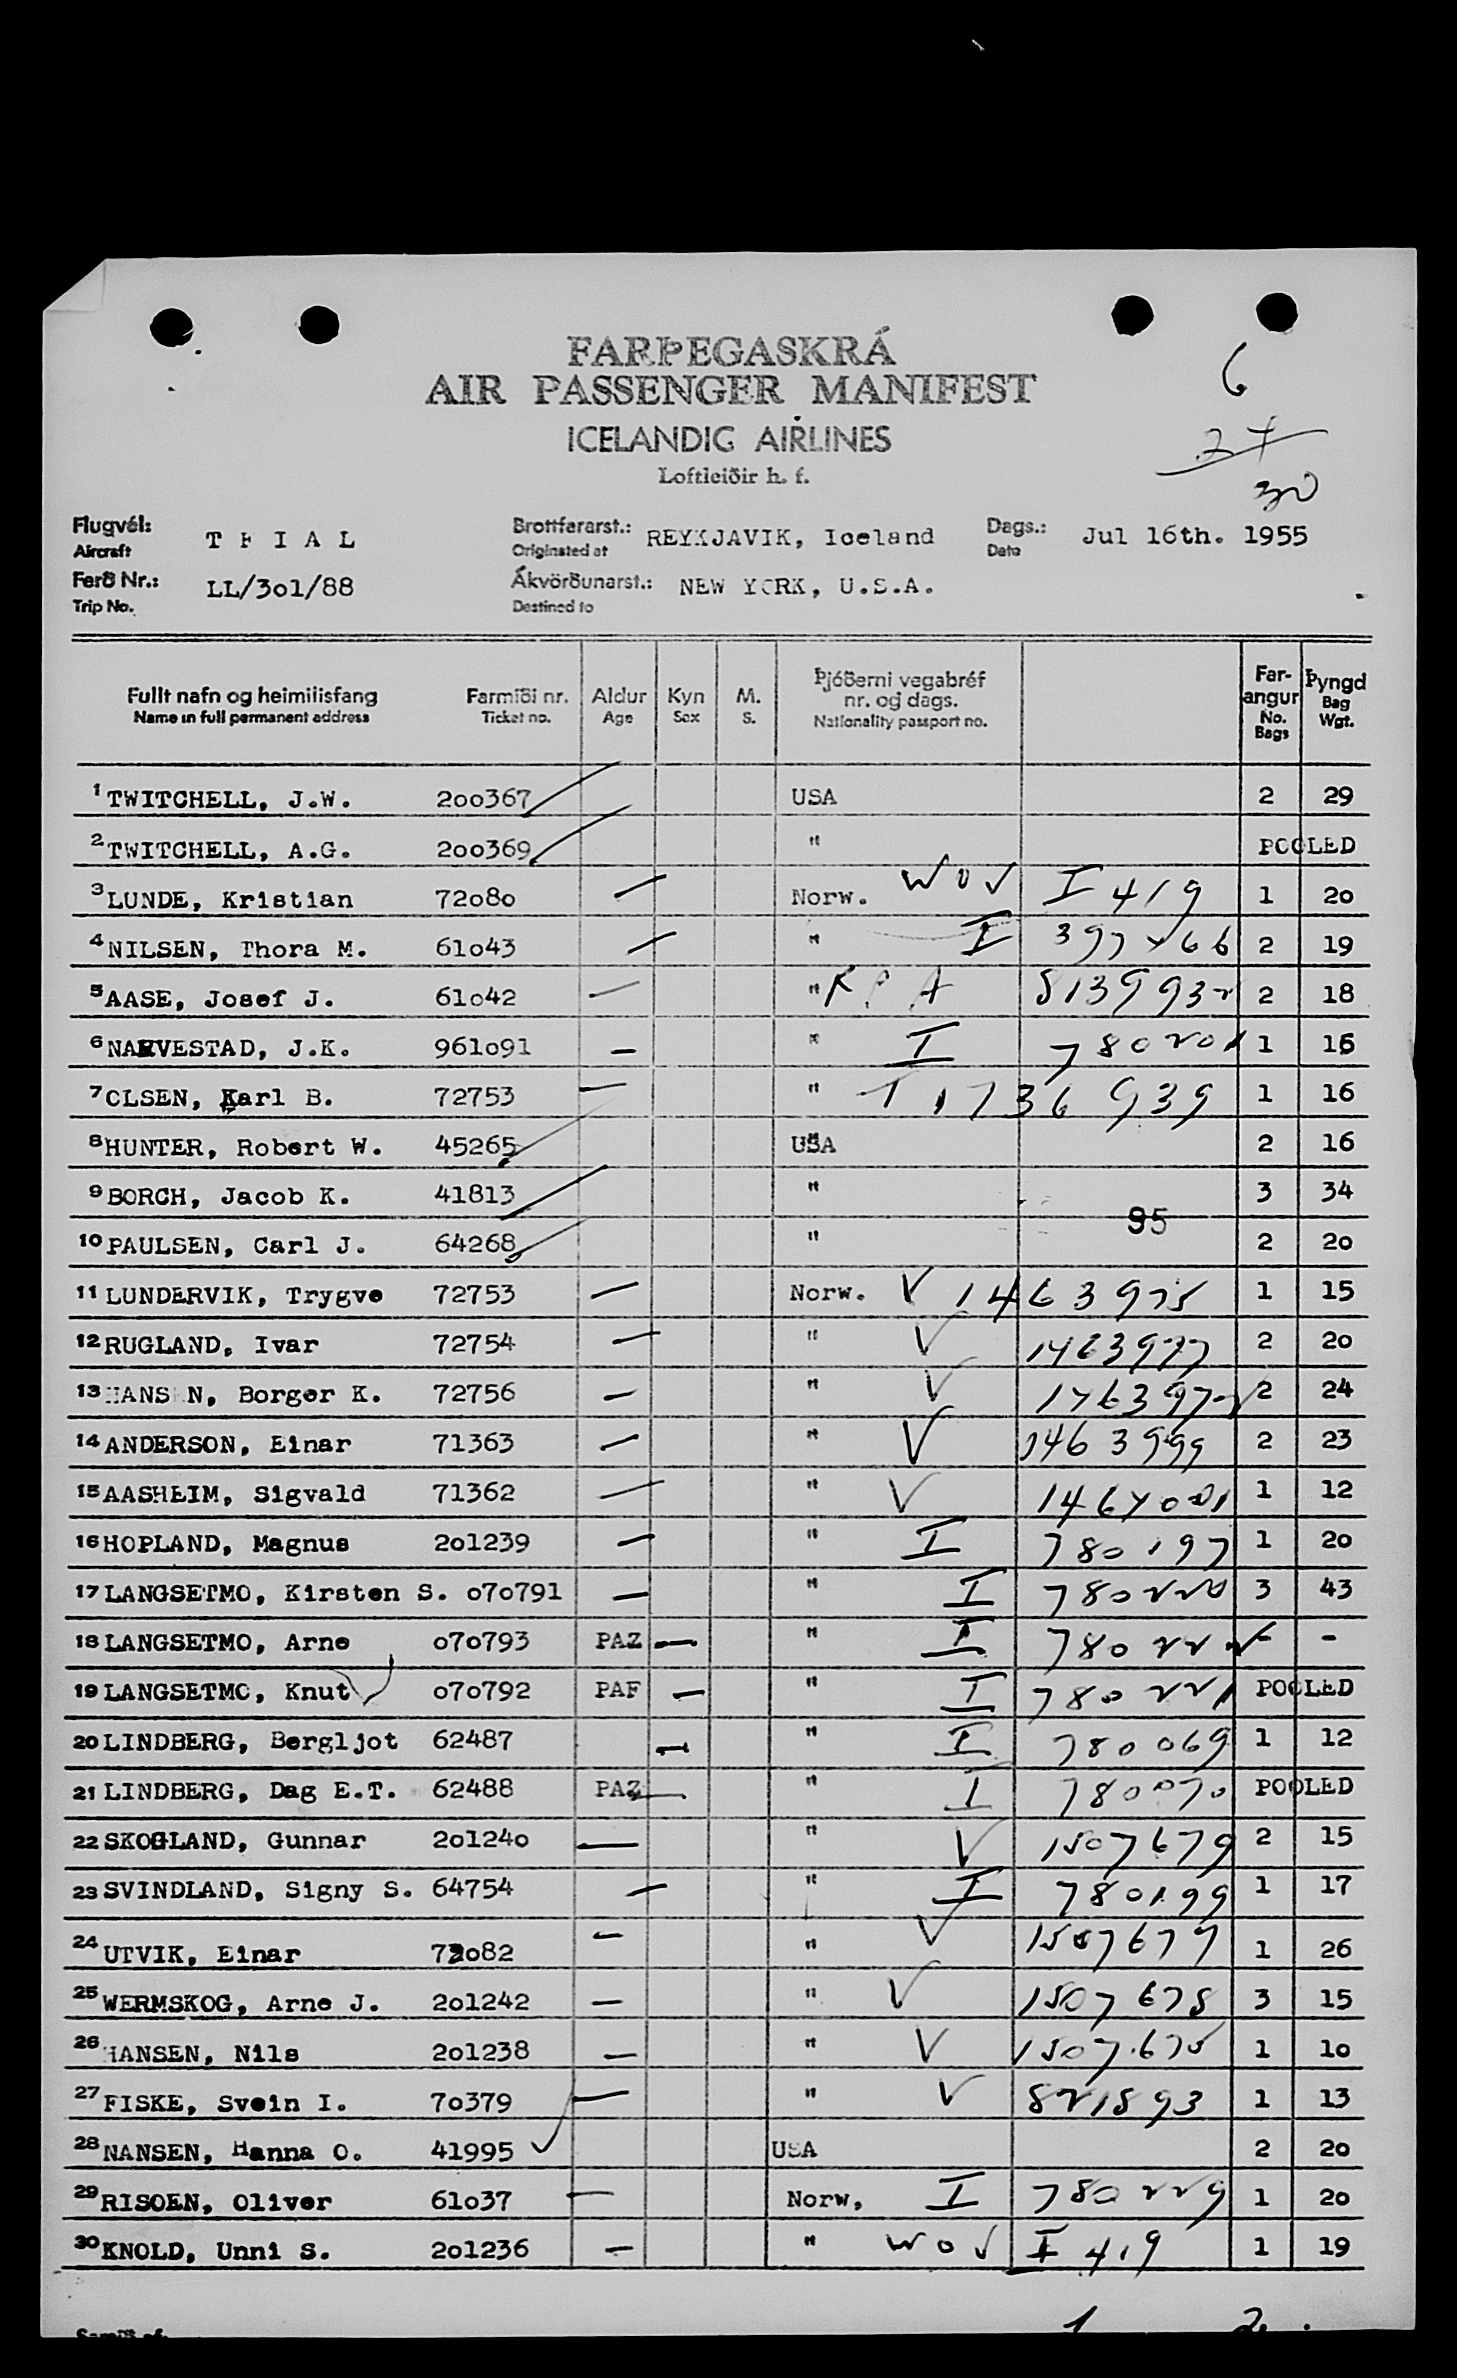 FARÞEGASKRÁ
AIR PASSENGER MANIFEST
ICELANDIC AIRLINES
Loftleiðir h. f.
6
27
30
Flugvél: Aircraft T F I A L Brottfararst.: Originated at REYKJAVIK, Iceland Dags.: Date Jul 16th. 1955
Ferð Nr.: Trip No. LL/3o1/88 Ákvörðunarst.: Destined to NEW YORK, U.S.A.
Fullt nafn og heimilisfang Farmiði nr. Aldur Kyn M. Þjóðerni vegabréf nr. og dags. Far-angur Þyngd
Name in full permanent address Ticket no. Age Sex S. Nationality passport no. No. Bags Bag Wgt.
1 TWITCHELL, J.W. 2oo367 USA 2 29
2 TWITCHELL, A.G. 2oo369 " POOLED
3 LUNDE, Kristian 72o8o Norw. WOV I 419 1 2o
4 NILSEN, Thora M. 61o43 " I 2 19
5 AASE, Josef J. 61o42 " 2 18
6 NARVESTAD, J.K. 961o91 " I 780201 1 15
7 OLSEN, Karl B. 72753 " 1 16
8 HUNTER, Robert W. 45265 USA 2 16
9 BORCH, Jacob K. 41813 " 3 34
95
10 PAULSEN, Carl J. 64268 " 2 2o
11 LUNDERVIK, Trygve 72753 Norw. V 1463975 1 15
12 RUGLAND, Ivar 72754 " V 1463977 2 2o
13 HANSEN, Borger K. 72756 " V 2 24
14 ANDERSON, Einar 71363 " V 1463999 2 23
15 AASHEIM, Sigvald 71362 " V 1 12
16 HOPLAND, Magnus 2o1239 " I 780197 1 2o
17 LANGSETMO, Kirsten S. o7o791 " I 780220 3 43
18 LANGSETMO, Arne o7o793 PAZ " I 780222 - -
19 LANGSETMO, Knut o7o792 PAF " I 780221 POOLED
20 LINDBERG, Bergljot 62487 " I 780069 1 12
21 LINDBERG, Dag E.T. 62488 PAZ " I 780070 POOLED
22 SKOGLAND, Gunnar 2o124o " V 1507679 2 15
23 SVINDLAND, Signy S. 64754 " I 780199 1 17
24 UTVIK, Einar 72o82 " V 1507677 1 26
25 WERMSKOG, Arne J. 2o1242 " V 1507678 3 15
26 HANSEN, Nils 2o1238 " V 1507675 1 1o
27 FISKE, Svein I. 7o379 " V 821893 1 13
28 NANSEN, Hanna O. 41995 USA 2 2o
29 RISOEN, Oliver 61o37 Norw, I 780229 1 2o
30 KNOLD, Unni S. 2o1236 " WOV I 419 1 19